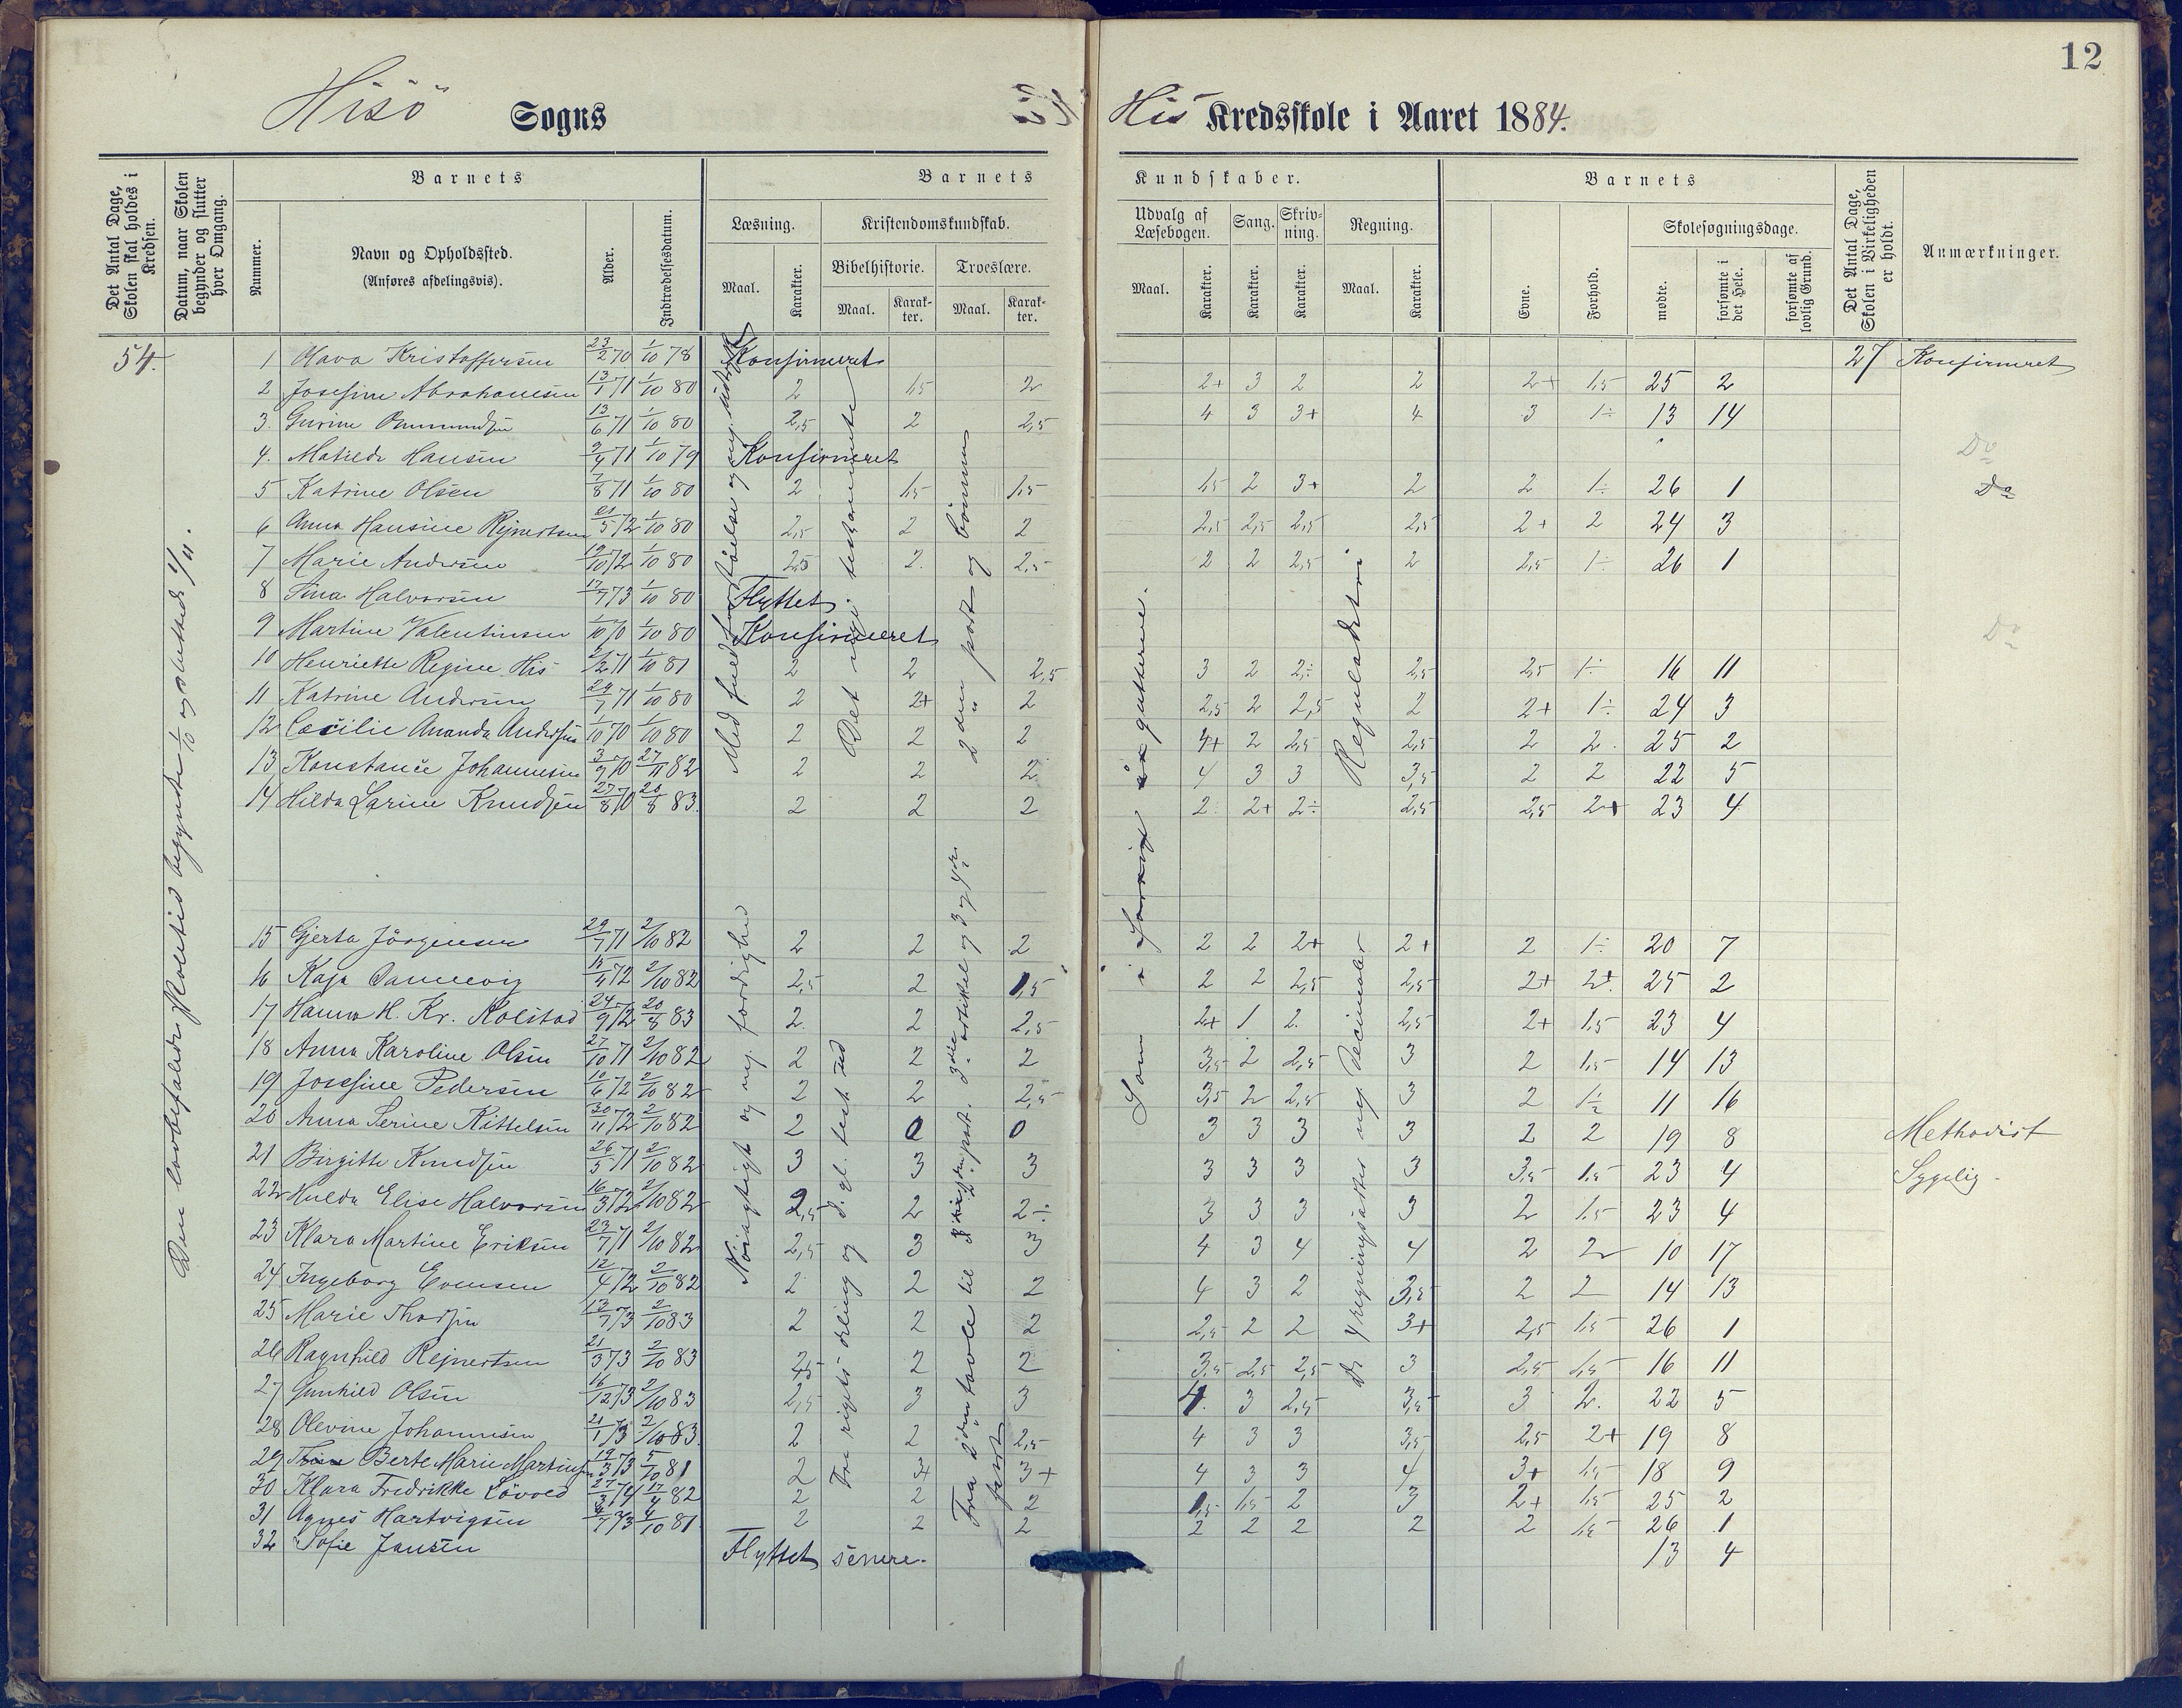 12
Hisö Sogns His Kredsskole i Aaret 1884.
Det Antal Dage, Skolen skal holdes i Kredsen.
Datum, naar Skolen begynder og slutter hver Omgang.
Barnets
Nummer.
Navn og Opholdssted.
(Anføres afdelingsvis).
Alder.
Indtrædelsesdatum.
Barnets Kundskaber.
Læsning.
Maal.
Karakter.
Kristendomskundskab.
Bibelhistorie.
Maal.
Karakter.
Troeslære.
Maal.
Karakter.
Udvalg af Læsebogen.
Maal.
Karakter.
Sang.
Karakter.
Skrivning.
Karakter.
Regning.
Maal.
Karakter.
Barnets
Evne.
Forhold.
Skolesøgningsdage.
mødte.
forsømte i det Hele.
forsømte af lovlig Grund.
Det Antal Dage, Skolen i Virkeligheden er holdt.
Anmærkninger.
54.
Den lovbefalede skoletid begyndte 1/10 og sluttede
1 Olava Kristoffersen 23/2 70 1/10 78 Konfirmeret 27 Konfirmeret
2 Josefine Abrahamsen 13/1 71 1/10 80 2 1,5 2 2+ 3 2 2 2+ 1,5 25 2
3. Gurine Ommundsen 13/6 71 1/10 80 2,5 2 2,5 4 3 3+ 4 3 1÷ 13 14
4. Matilde Hansen 9/4 71 1/10 79 Konfirmeret Do
5 Katrine Olsen 7/8 71 1/10 80 2 1,5 1,5 1,5 2 3+ 2 2 1÷ 26 1 Do
6 Anna Hansine Rejnertsen 21/5 72 1/10 80 2,5 2 2 2,5 2,5 2,5 2,5 2+ 2 24 3
7 Marie Andersen 19/10 72 1/10 80 2,5 2. 2,5 2 2 2,5 2 2,5 1÷ 26 1
8 Sina Halvorsen 17/7 73 1/10 80 Flyttet
9 Martine Valentinsen 1/10 70 1/10 80 Konfirmeret Do
10 Henriette Regine His 2/2 71 1/10 81 2 2 2,5 3 2 2÷ 2,5 2,5 1÷ 16 11
11 Katrine Andersen 29/7 71 1/10 80 2 2+ 2 2,5 2 2,5 2 2+ 1÷ 24 3
12 Cæcilie Amanda Andersen 1/10 70 1/10 80 2 2 2 4+ 2 2,5 2,5 2 2. 25 2
13 Konstance Johannesen 3/9 70 27/11 82 2 2 2 4 3 3 3,5 2 2 22 5
14 Hilda Larine Knudsen 27/8 70 20/8 83. 2 2 2 2. 2+ 2÷ 2,5 2,5 2+ 23 4
Med fuld forståelse og
Det nye testamente
2den part og bönnen
Som i
gutterne.
Reguladetri
15 Gjerta Jörgensen 29/7 71 2/10 82 2 2 2 2 2 2+ 2+ 2 1÷ 20 7
16 Kaja Dannevig 15/4 72 2/10 82 2,5 2 1,5 2 2 2,5 2,5 2+ 2+ 25 2
17 Hanna H. Kr. Kolstad 24/9 72 20/8 83 2 2 2,5 2+ 1 2. 2,5 2+ 1,5 23 4
18 Anna Karoline Olsen 27/10 71 2/10 82 2 2 2 3,5 2 2,5 3 2 1,5 14 13
19 Josefine Pedersen 10/6 72 2/10 82 2 2 2,5 3,5 2 2,5 3 2 1÷ 11 16
20 Anna Serine Kittelsen 30/11 72 2/10 82 2 0 0 3 3 3 3 2 2 19 8 Methodist
21 Birgitte Knudsen 26/5 71 2/10 82 3 3 3 3 3 3 3 3,5 1,5 23 4 Sygelig.
22 Hulda Elise Halvorsen 16/3 72 2/10 82 2,5 2 2÷ 3 3 3 3 2 1,5 23 4
23 Klara Martine Eriksen 23/7 71 2/10 82 2,5 3 3 4 3 4 4 2 2 10 17
24 Ingeborg Evensen 12/4 72 2/10 82 2 2 2 4 3 2 3,5 2 2 14 13
25 Marie Thorsen 13/7 73 2/10 83 2 2 2 2,5 2 2 3+ 2,5 1,5 26 1
26 Ragnhild Rejnertsen 21/3 73 2/10 83 2,5 2 2 3,5 2,5 2,5 3 2,5 1,5 16 11
27 Gunhild Olsen 16/12 73 2/10 83 2,5 3 3 4. 3 2,5 3,5 3 2. 22 5
28 Olevine Johannesen 21/1 73 2/10 83. 2 2 2,5 4 3 3 3,5 2,5 2+ 19 8
29 Berte Marie Martinsen 19/3 73 5/10 81 2 3+ 3+ 4 3 3 4 3+ 1,5 18 9
30 Klara Fredrikke Lövold 27/3 74 17/4 82 2 2 2 1,5 1,5 2 3 2+ 1,5 25 2
31 Agnes Hartvigsen 73 4/10 81. 2 2 2 2 2 2 2 2 1,5 26 1
32 Sofie Jansen Flyttet senere. 13 4
Nöiagtigt og med færdighed
Fra rigets deling og d. gl. test. ud
Fra 2den tavle til
3die artikel og 3 og 4de
part.
De 4 regningsarter med decimaler